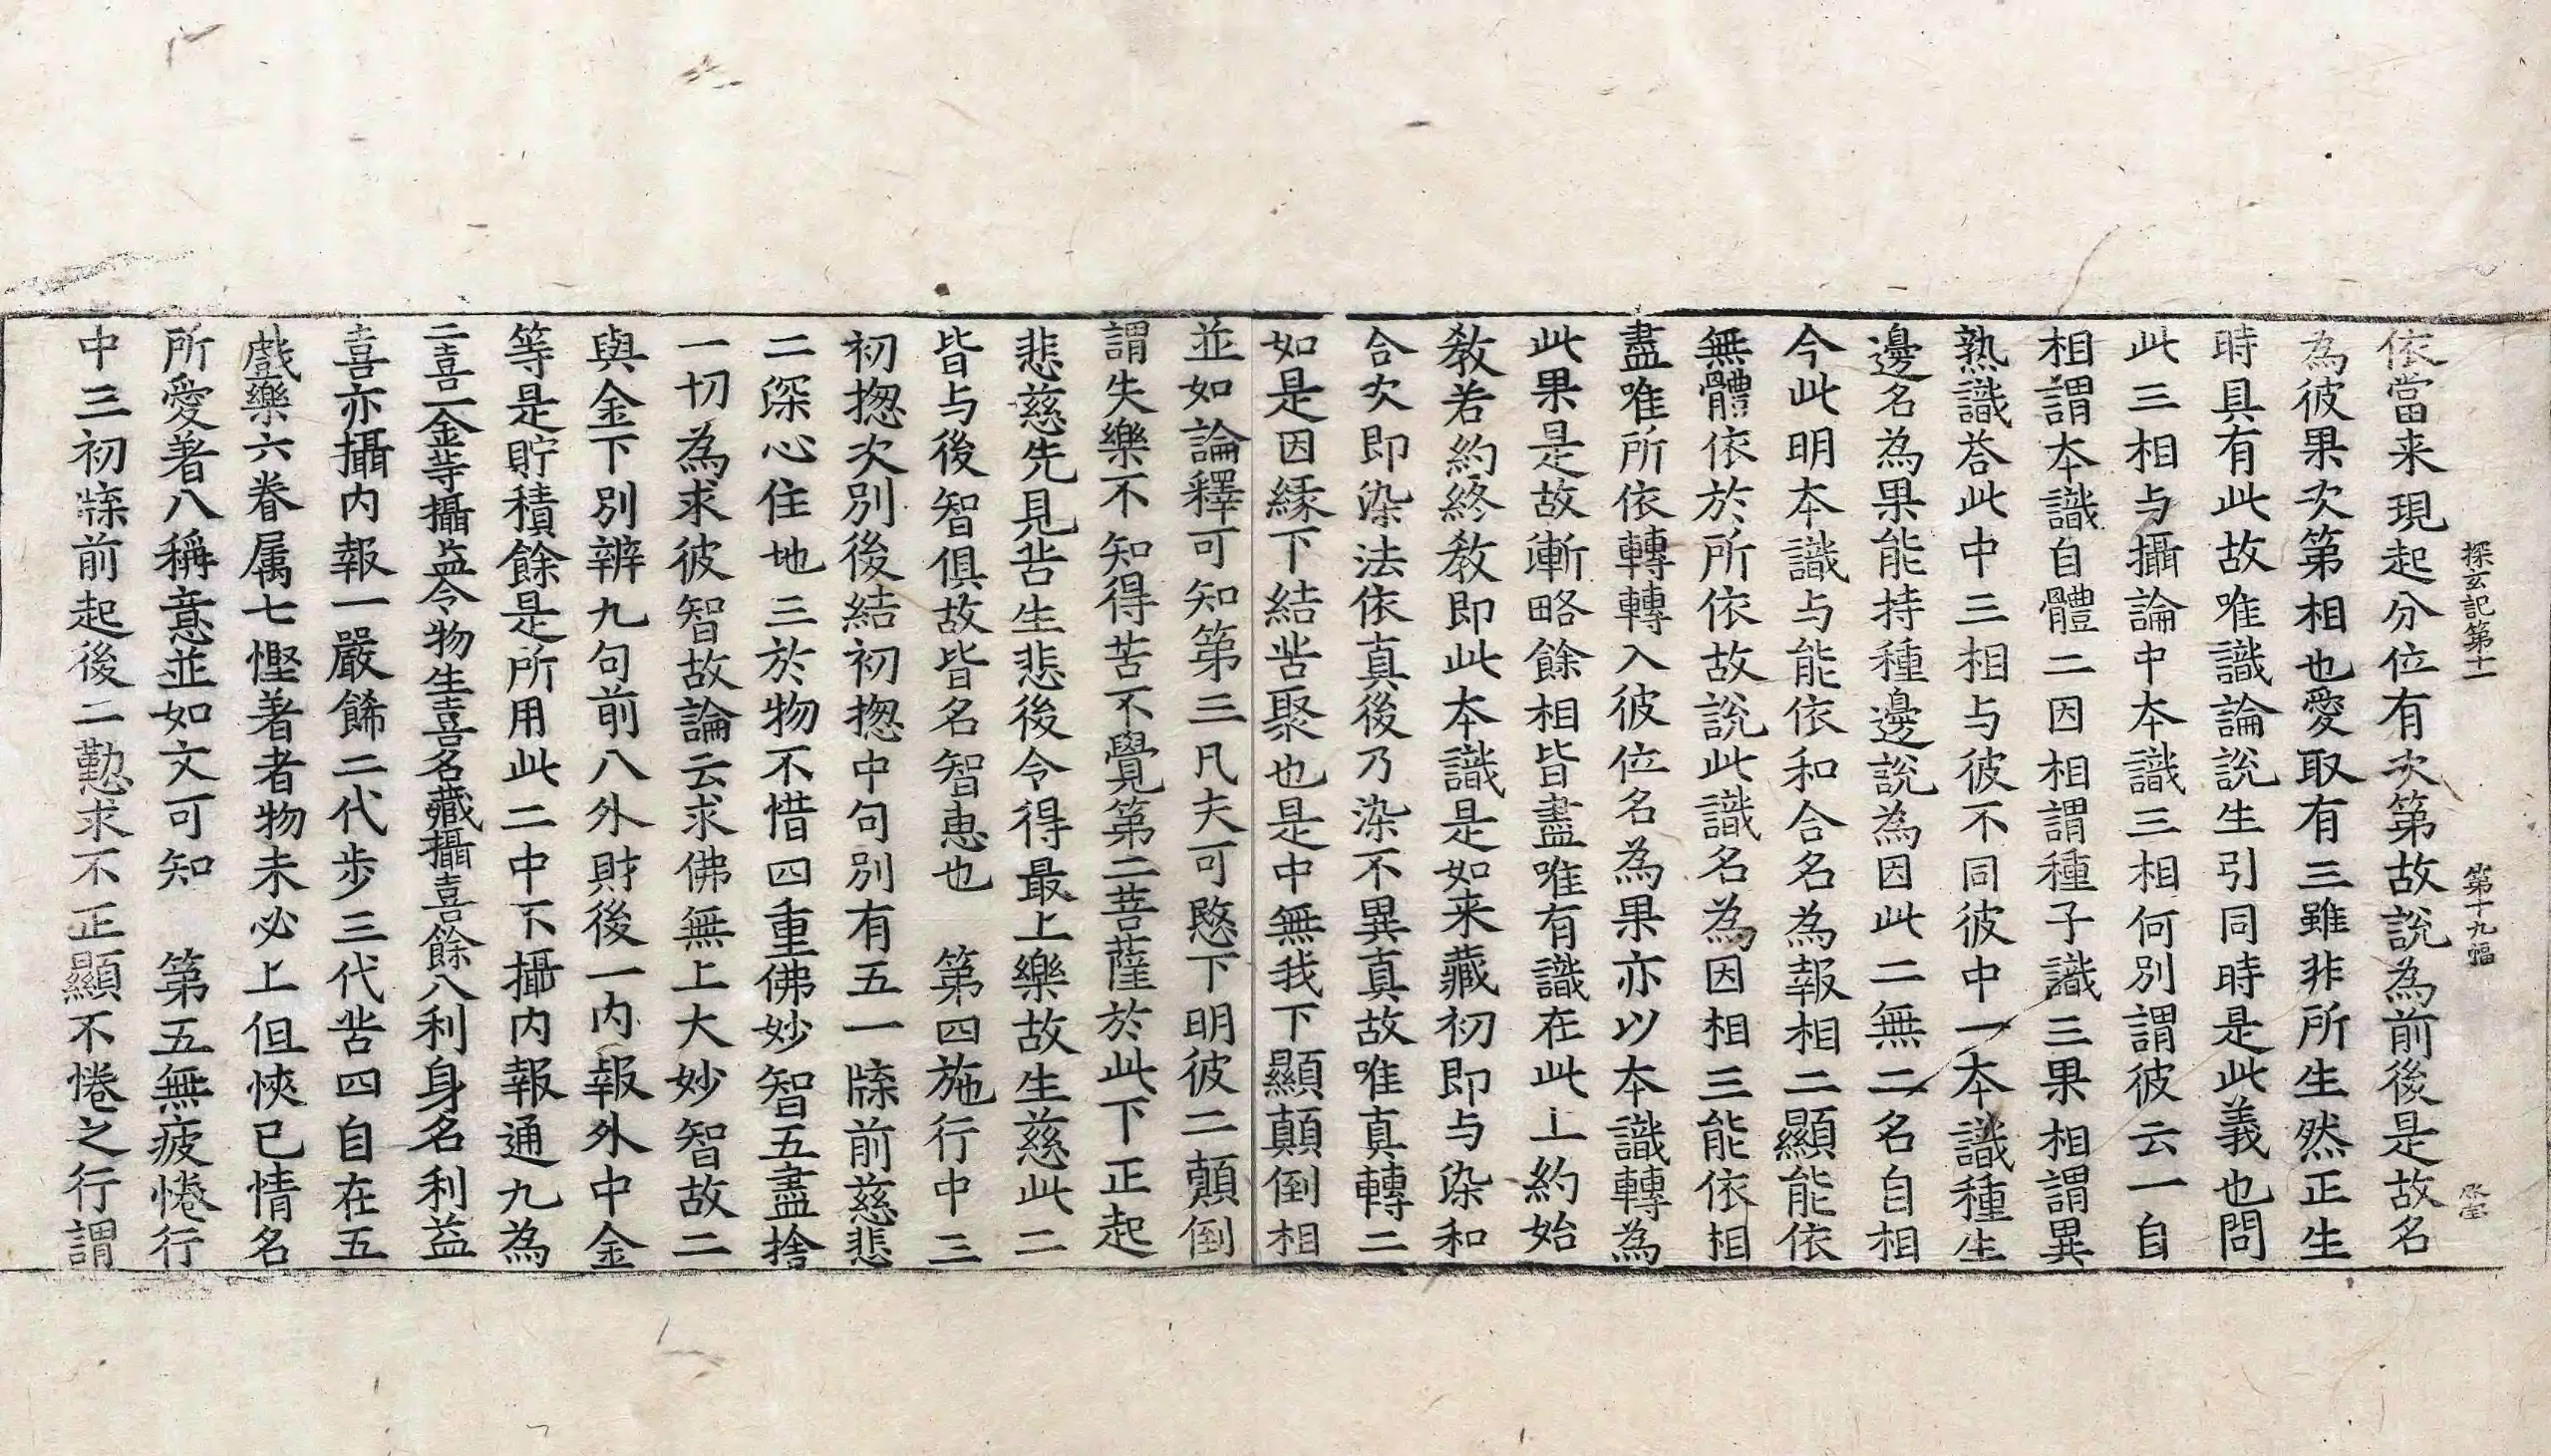 探玄記第十一　第十九幅
依當来現起分位有次第故説為前後是故名
為彼果次第相也愛取有三雖非所生然正生
時具有此故唯識論説生引同時是此義也問
此三相与攝論中本識三相何別謂彼云一自
相謂本識自體二因相謂種子識三果相謂異
熟識荅此中三相与彼不同彼中一本識種生
邊名為果能持種邊説為因此二無二名自相
今此明本識与能依和合名為報相二顯能依
無體依於所依故説此識名為因相三能依相
盡唯所依轉轉入彼位名為果亦以本識轉為
此果是故漸略餘相皆盡唯有識在此上約始
教若約終教即此本識是如来藏初即与染和
合次即染法依真後乃染不異真故唯真轉二
如是因緣下結苦聚也是中無我下顯顛倒相
並如論釋可知第三凡夫可愍下明彼二顛倒
謂失樂不知得苦不覺第二菩薩於此下正起
悲慈先見苦生悲後令得最上樂故生慈此二
皆与後智俱故皆名智恵也　第四施行中三
初揔次別後結初揔中句別有五一牒前慈悲
二深心住地三於物不惜四重佛妙智五盡捨
一切為求彼智故論云求佛無上大妙智故二
與金下別辨九句前八外財後一内報外中金
等是貯積餘是所用此二中下攝内報通九為
二喜一金等攝益令物生喜名藏攝喜餘八利身名利益
喜亦攝内報一嚴餙二代歩三代苦四自在五
戲樂六眷属七慳著者物未必上但愜已情名
所愛著八稱意並如文可知　第五無疲惓行
中三初牒前起後二懃求不正顯不惓之行謂